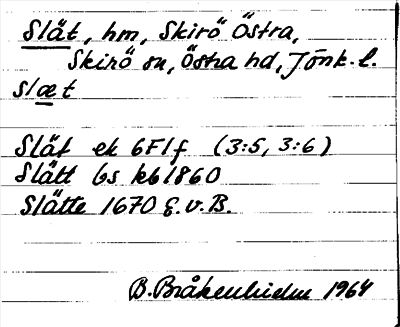 Slät, hm, Skirö Östra,
Skirö sn, Östra hd, Jönk. l.
slæt
Slät ek 6F1f (3:5, 3:6)
Slätt bs kb 1860
Slätte 1670 g.v.B.
B. Bråkenhielm 1964